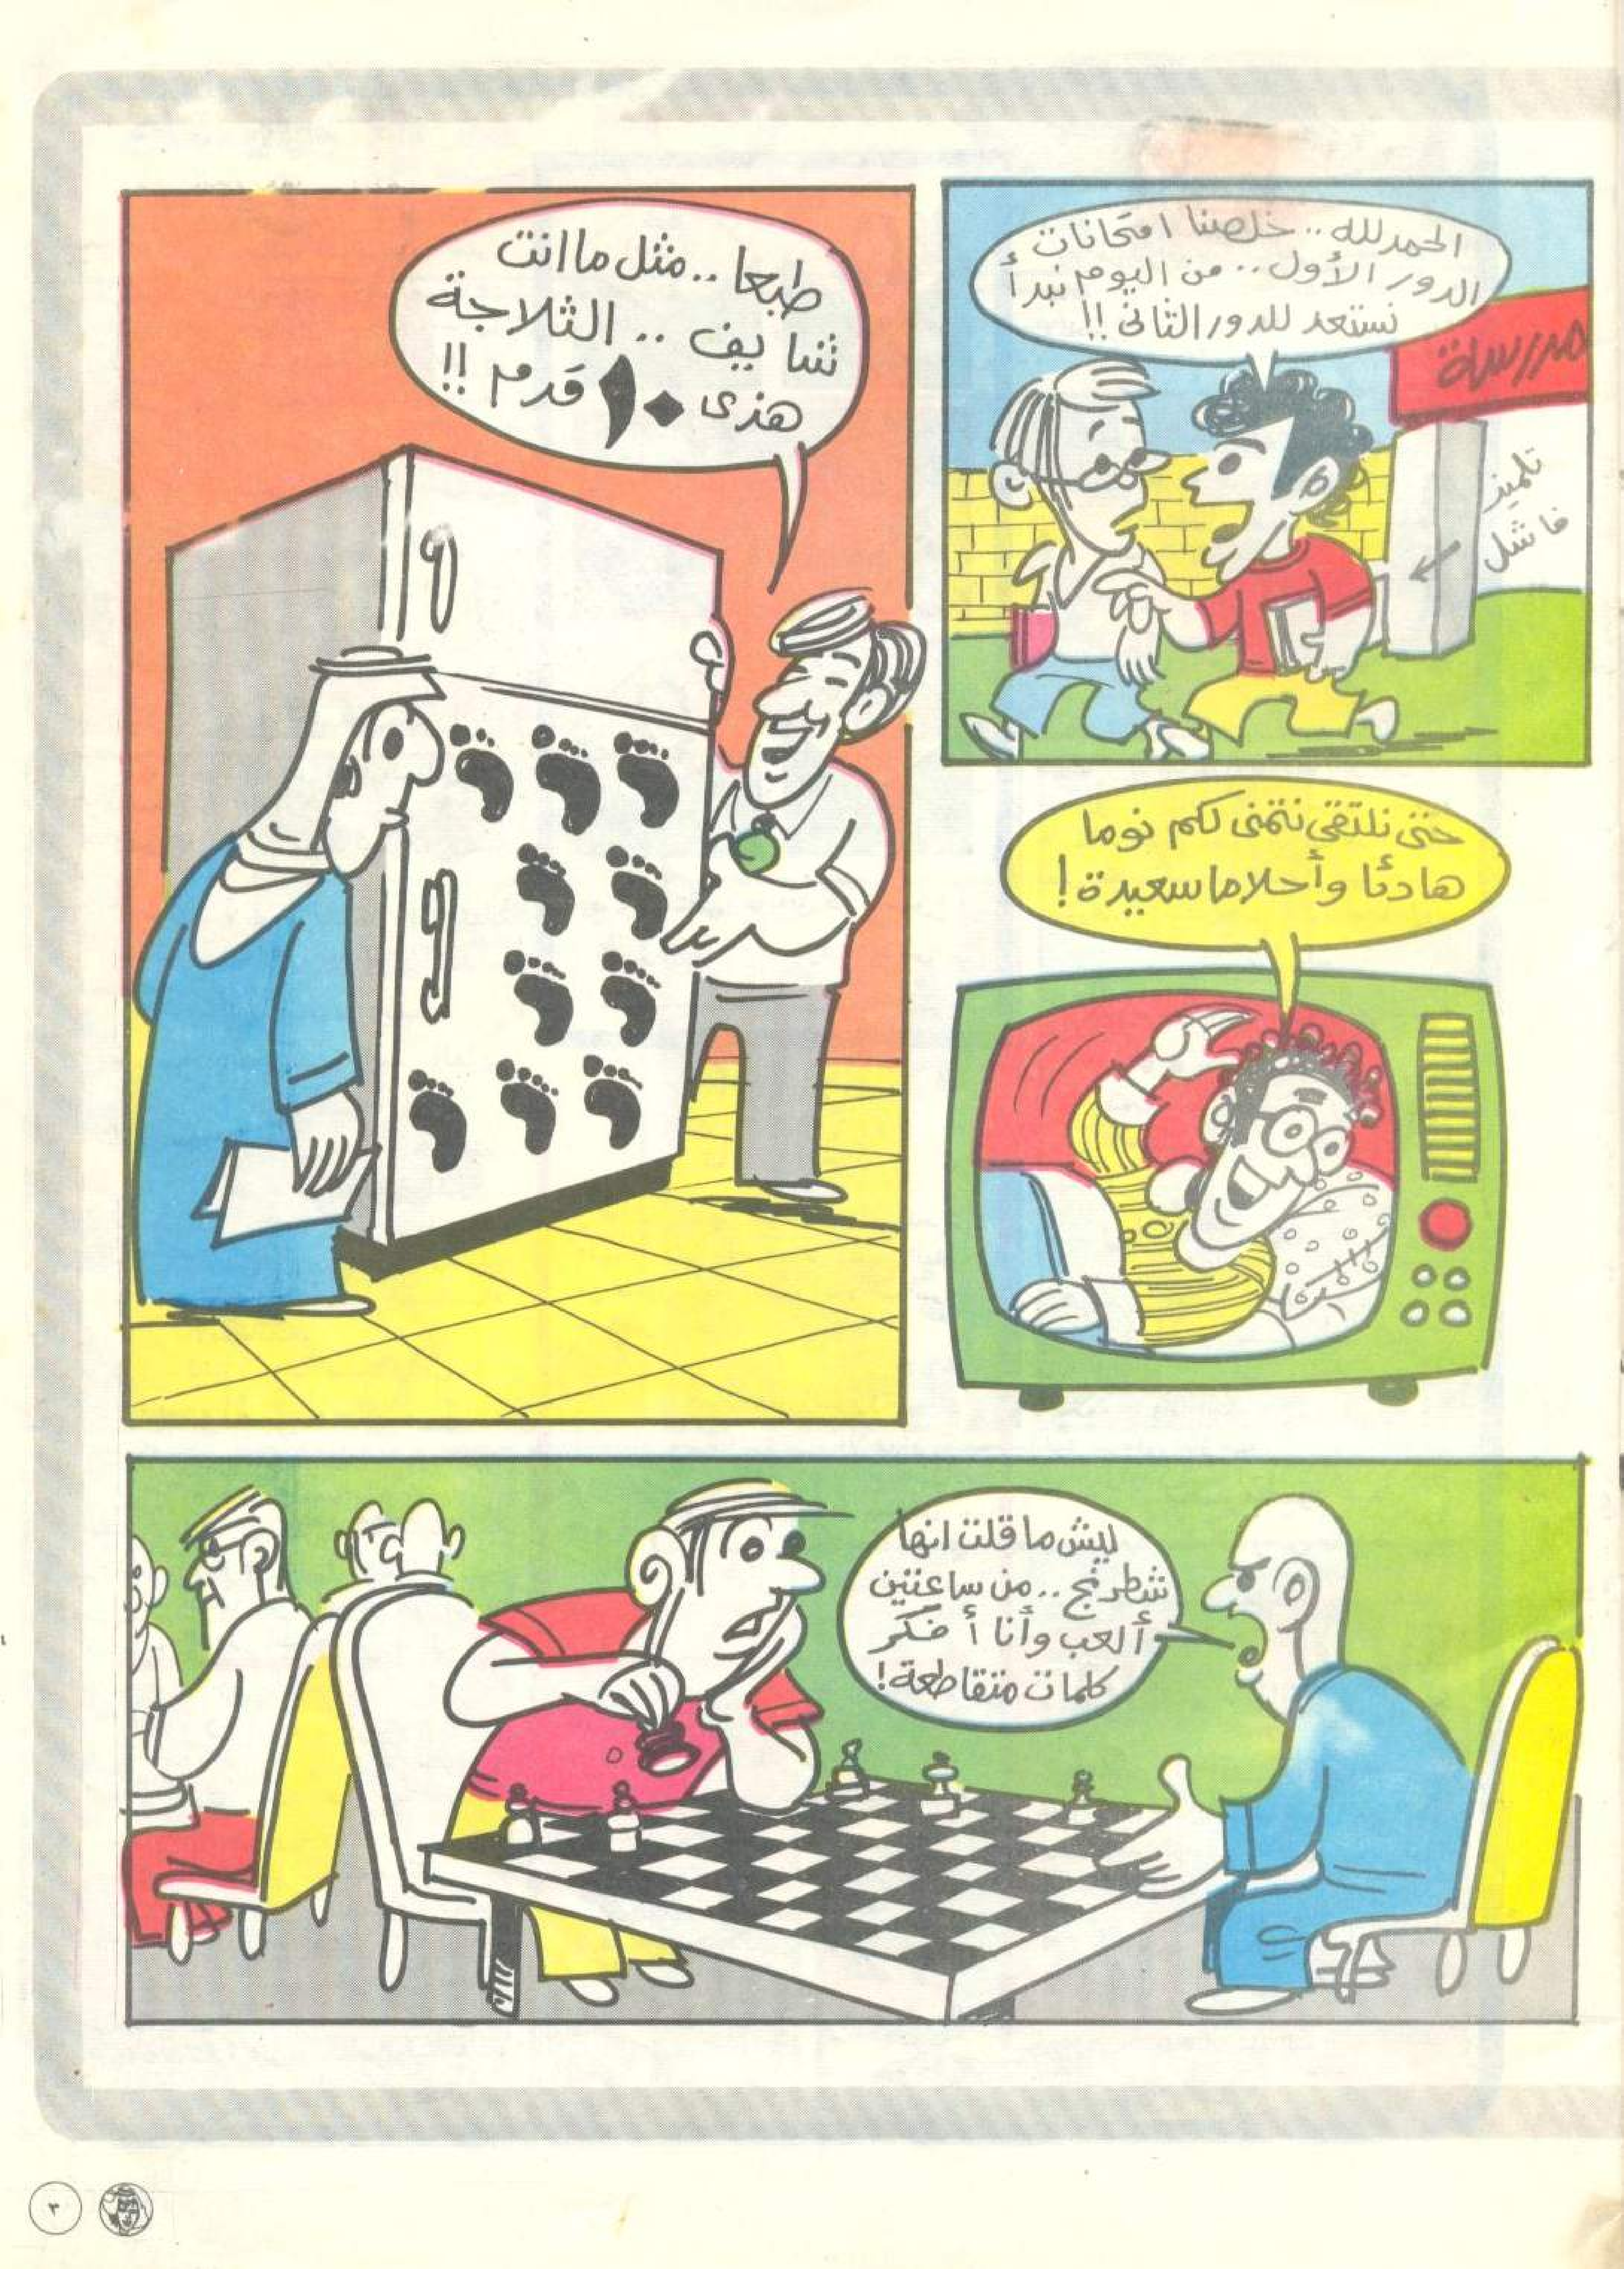 الحمد لله .. خلصنا امتحانات
الدور الأول .. من اليوم نبدأ
نستعد للدور الثاني !!
مدرسة
تلميذ
فاشل
طبعا .. مثل ما انت
شايف .. الثلاجة
هذى ١٠ قدم !!
حتى نلتقي نتمنى لكم نوما
هادئا وأحلاما سعيدة !
ليش ما قلت انها
شطرنج .. من ساعتين
ألعب وأنا أفكر
كلمات متقاطعة !
٣